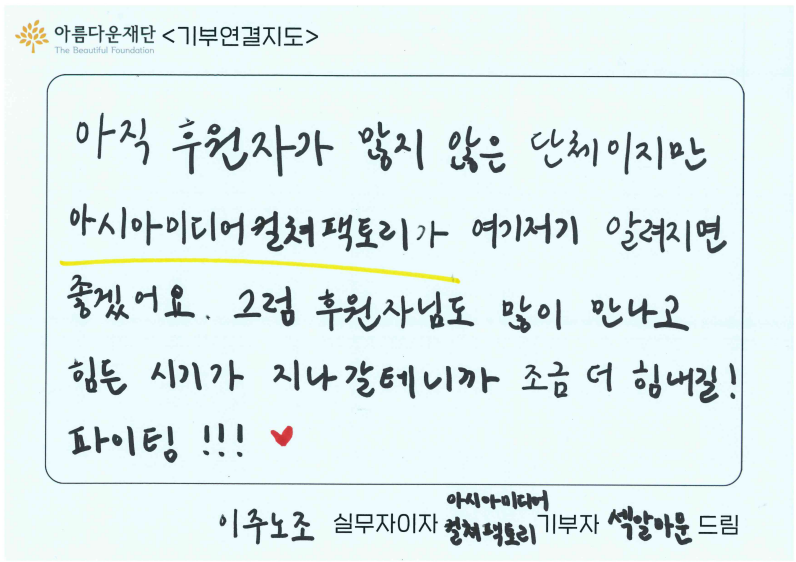 아름다운재단 <기부연결지도>
The Beautiful Foundation
아직 후원자가 많지 않은 단체이지만
아시아미디어컬쳐팩토리가 여기저기 알려지면
좋겠어요. 그럼 후원자님도 많이 만나고
힘든 시기가 지나갈테니까 조금 더 힘내길!
파이팅!!!
이주노조 실무자이자 아시아미디어
컬쳐팩토리 기부자 섹알마문 드림